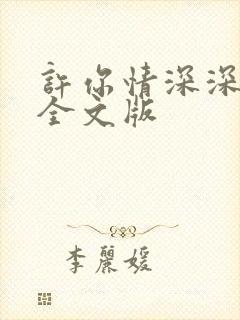 許你情深深
全文版
李麗媛